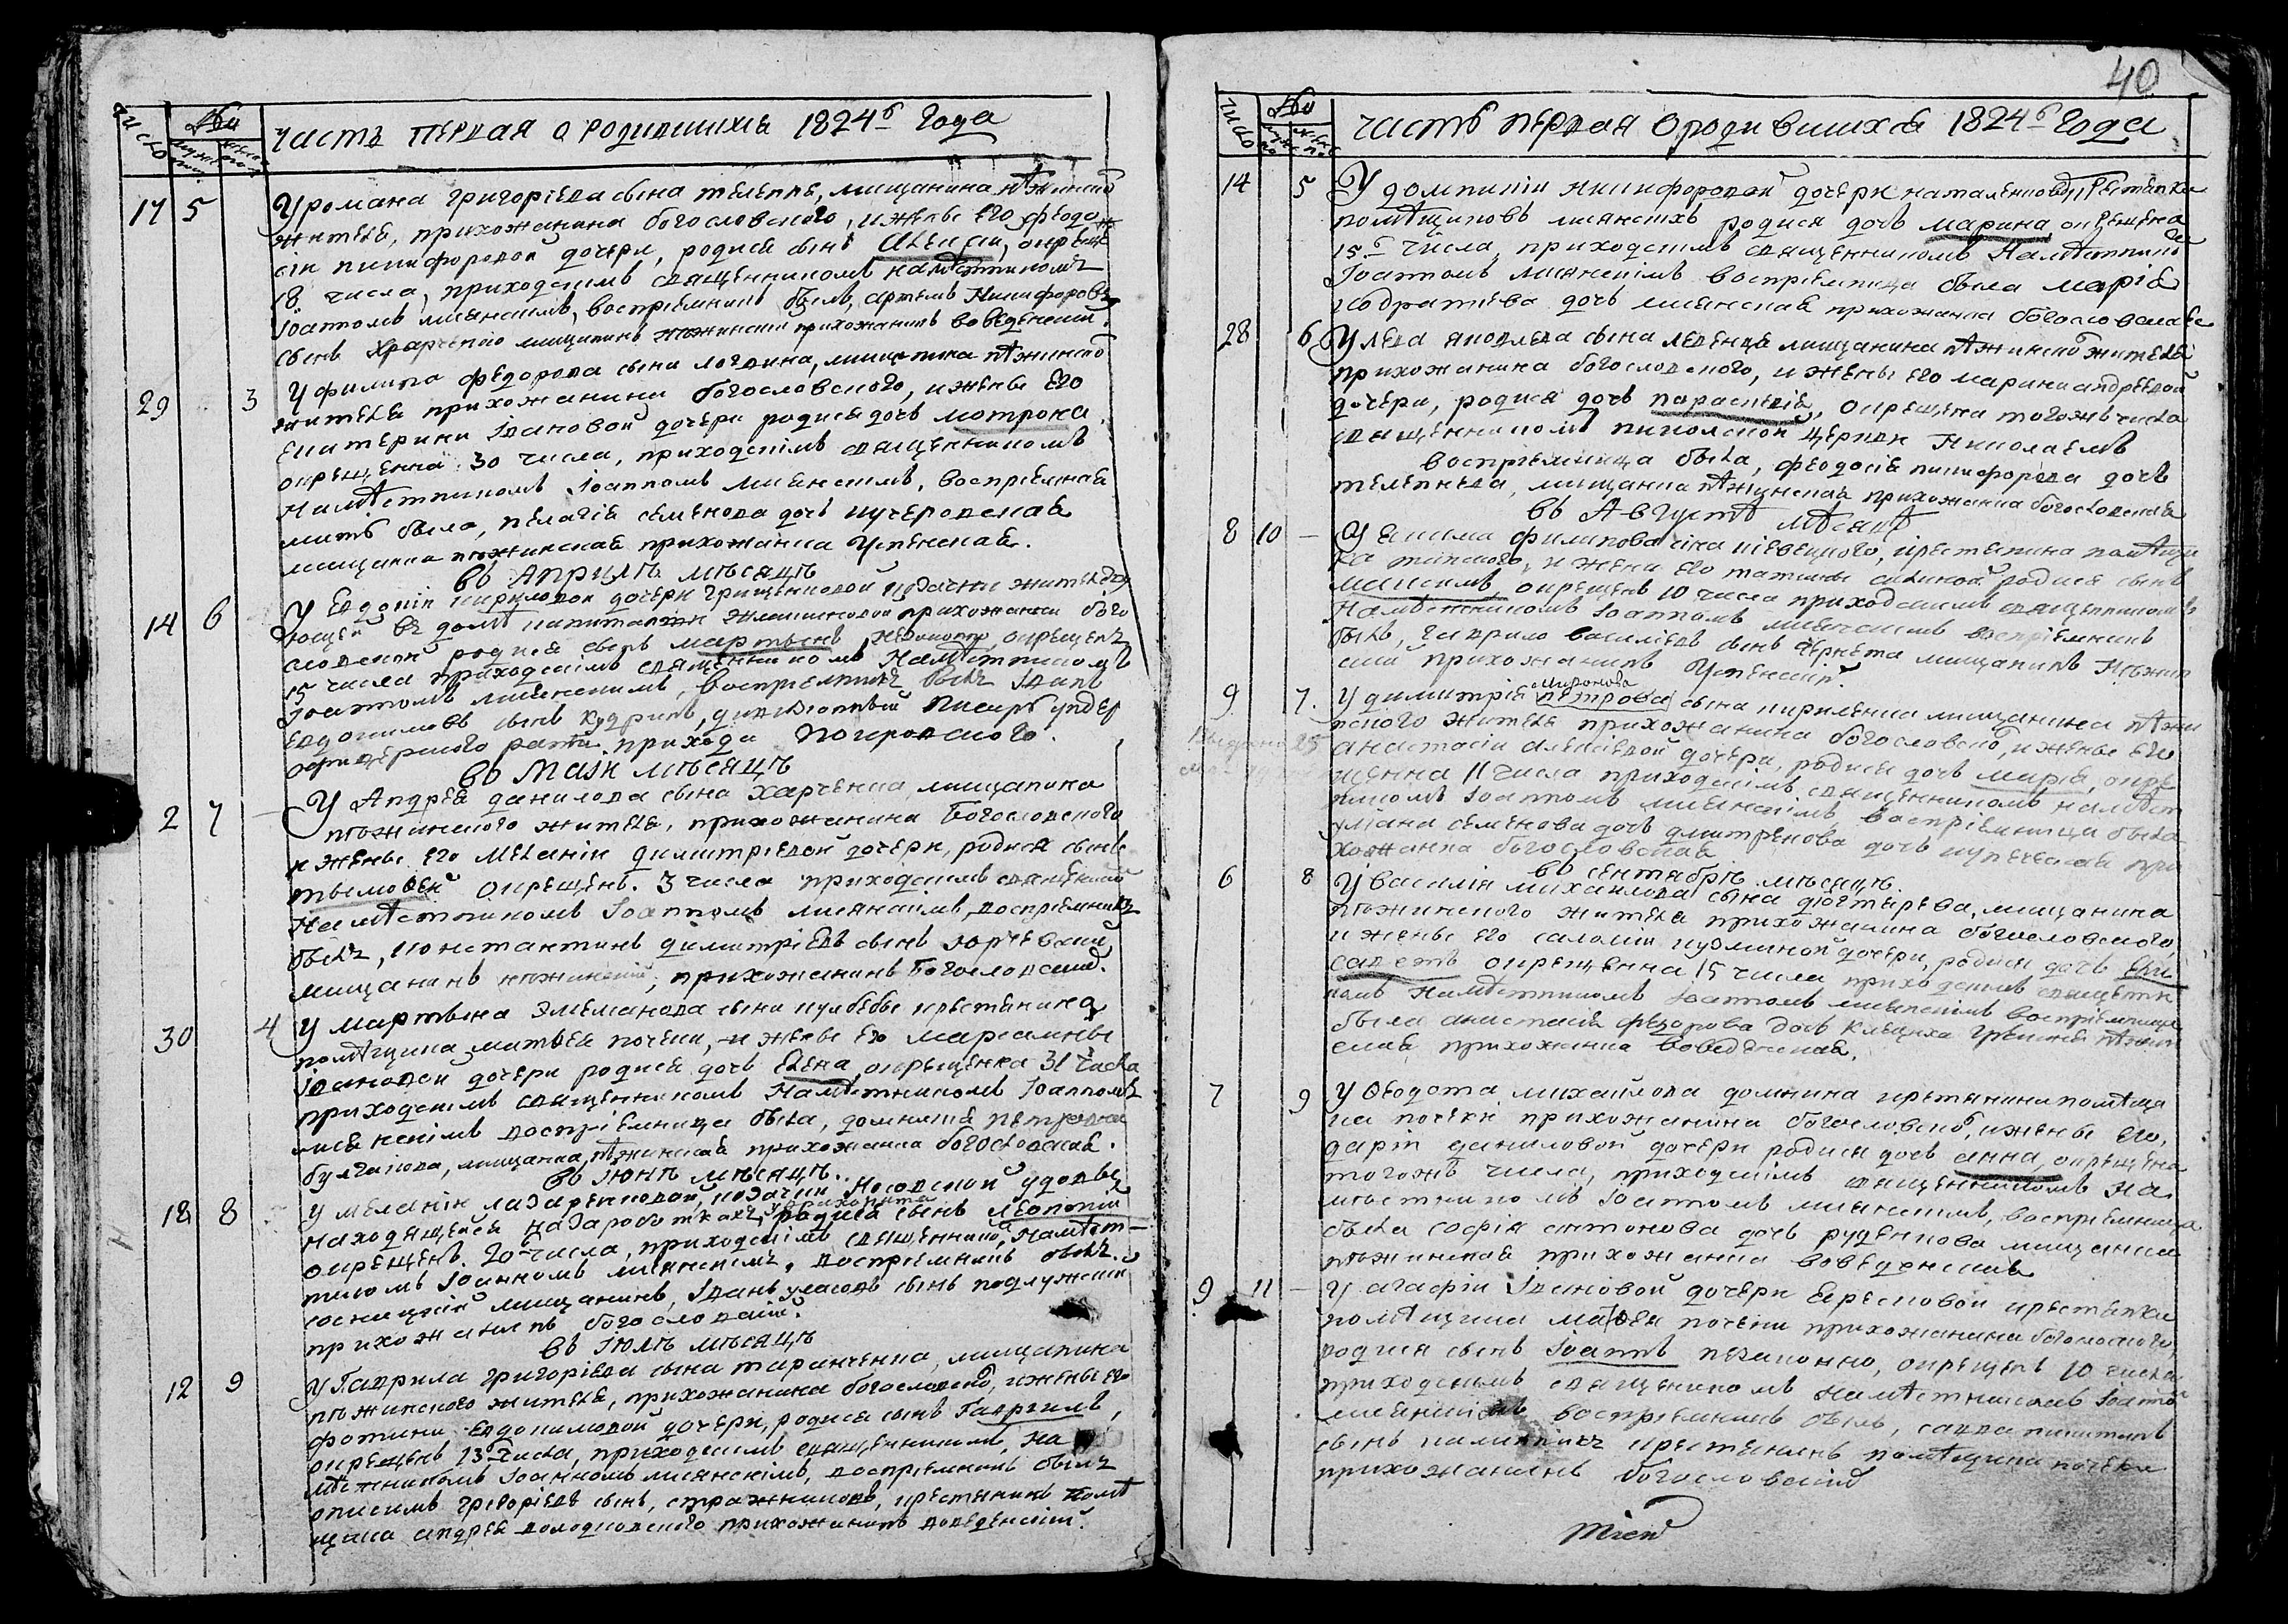 число
№
мужс. пол.
женс. пол.
часть первая о родившихся 1824г Года
17 5 У романа григорієва сына телепне, мищанина нѣжинско
жителя, прихожанина богословского, и жены его феодо
сіи никифоровой дочери, родися сынъ Алексіи, окреще
18 числа, приходскимъ священникомъ намѣстникомъ
Іоанномъ миянскимъ, воспріемникъ былъ, артемъ Никифоровъ
сынъ мищанинъ нѣжинский прихожанинъ воведенский
29 3 У филипа федорова сына логвина, мищанина нѣжинско
жителя прихожанина богословского, и жены его
екатерини Івановой дочери родися дочь мотрона
окрещенна 30 числа, приходскимъ священникомъ
Намѣстникомъ Іоанномъ миянскимъ, воспріемная
мать была, пелагія семенова дочь кучеровская
мищанка нѣжинская прихожанка Успенская.
въ Априлѣ мѣсяцѣ
14 6 У Евдокіи кириловой дочери грищенковой козачки жителству
ющей въ домѣ капитанши прихожанки бого
словской родися сынъ мартынъ незаконно, окрещенъ
15 числа приходскимъ священникомъ Намѣстникомъ
Іоанномъ миянскимъ, воспріемникъ былъ Іванъ
Евдокимовъ сынъ Кудринъ, писарь ундер
офицерского ранги прихода покровского.
въ Маіи мѣсяцѣ
2 7 — У Андрея данилова сына харченка, мищанина
нѣжинского жителя, прихожанина Богословского
и жены его Меланіи димитріевой дочери, родися сынъ
тымофей окрещенъ. 3 числа приходскимъ священнико
Намѣстникомъ Іоанномъ миянскимъ, воспріемникъ
былъ, константинъ димитріевъ сынъ юрчевский
мищанинъ нѣжинский, прихожанинъ Богословский.
30 4 У мартына емеманова сына кулбебы крестянина
помѣщика матвея почеки, и жены его мариамны
Івановой дочери родися дочь Елена окрещенка 31 числа
приходскимъ священникомъ Намѣстникомъ Іоанномъ
миянскимъ воспріемница была, домникия петрова
булгакова, мищанка нѣжинская прихожанка богословская.
въ юнѣ мѣсяцѣ.
18 8 У меланіи лазаренковой, козачки Носовской удовы
находящейся на заработкахъ родися сынъ леонтій
окрещенъ. 20 числа, приходскимъ священнико, Намѣст-
никомъ Іоанномъ миянскимъ, воспріемникъ былъ.
сосницкій мищанинъ, Іванъ уласовъ сынъ подлужский
прихожанинъ богословский.
въ Іюлѣ мѣсяцѣ
12 9 У Гаврила григорієва сына таранченка, мищанина
нѣжинского жителя, прихожанина богословско, и жены его
фотини евдокимовой дочери, родися сынъ Гавріилъ,
окрещенъ 13 числа, приходскимъ священникомъ, на
мѣстникомъ Іоанномъ миянскимъ, воспріемникъ былъ
онисимъ григоріевъ сынъ, стражниковъ, крестянинъ помѣ
щика андрея володковского прихожанинъ воведенский.
40
число
№
мужс. по.
женс. по.
часть первая о родившихся 1824г Года
14 5 У домникіи никифоровой дочери наталенковой крестянки
помѣщиковъ миянскихъ родися дочь марина, окрещена
15г числа, приходскимъ священникомъ Намѣстнико
Іоанномъ миянскимъ воспріемница была марія
кодратева дочь миянская прихожанка богословская
28 6 У лева яковлева сына левенця мищанина нѣжинско жителя
прихожанина богословского, и жены его марини андреевой
дочери, родися дочь параскевія, окрещена тогожъ числа
священникомъ николской церкви Николаемъ
воспріемница была, феодосія никифорова дочь
телепнева, мищанка нѣжинская прихожанка богословская
въ Августѣ мѣсяцѣ
8 10 — У якима филипова сина крестянина помѣщи
ка, и жени его татияны родися сынъ
максимъ, окрещенъ 10 числа приходскимъ священникомъ
Намѣстникомъ Іоанномъ миянскимъ воспріемникъ
былъ, гаврило василіевъ сынъ чернета мищанинъ Нѣжин
ский прихожанинъ Успенский.
9 7. У димитрія петрова миронова сына кириленка мищанина нѣжи
нского жителя прихожанина богословско, и жены его
анастасіи алексіевой дочери, родися дочь марія, окре
щенна 11 числа приходскимъ священникомъ намѣст
никомъ Іоанномъ миянскимъ, воспріемница была
уліана семенова дочь дмитренкова дочь купеческая при
хожанка богословская
въ сентябрѣ мѣсяцѣ.
6 8 У василія михаилова сына дюгтярева, мищанина
нѣжинского жителя прихожанина богословского,
и жены его саломіи кузминой дочери, родися дочь Ели
саветъ окрещенна 15 числа приходскимъ священни
комъ Намѣстникомъ Іоанномъ миянскимъ воспріемница
была анастасія федорова дочь клецуха нѣжин
ская прихожанка воведенская.
7 9 У Ѳеодота михайлова домнина крестянина помѣщи
ка почеки прихожанина богословско, и жены его,
даріи даниловой дочери родися дочь анна, окрещена
тогожъ числа, приходскимъ священникомъ На
мѣстникомъ Іоанномъ миянскимъ, воспріемница
была софія антонова дочь руденкова мищанка
нѣжинская прихожанка воведенская
9 11 — У агафіи Івановой дочери Береговой крестянки
помѣщика матвея почеки прихожанина богословского,
родися сынъ Іоаннъ незаконно, окрещенъ 10 числа
приходскимъ священникомъ Намѣстникомъ Іоанно
миянскимъ воспріемникъ былъ, савва никитинъ
сынъ крестянинъ помѣщика почеки
прихожанинъ богословский